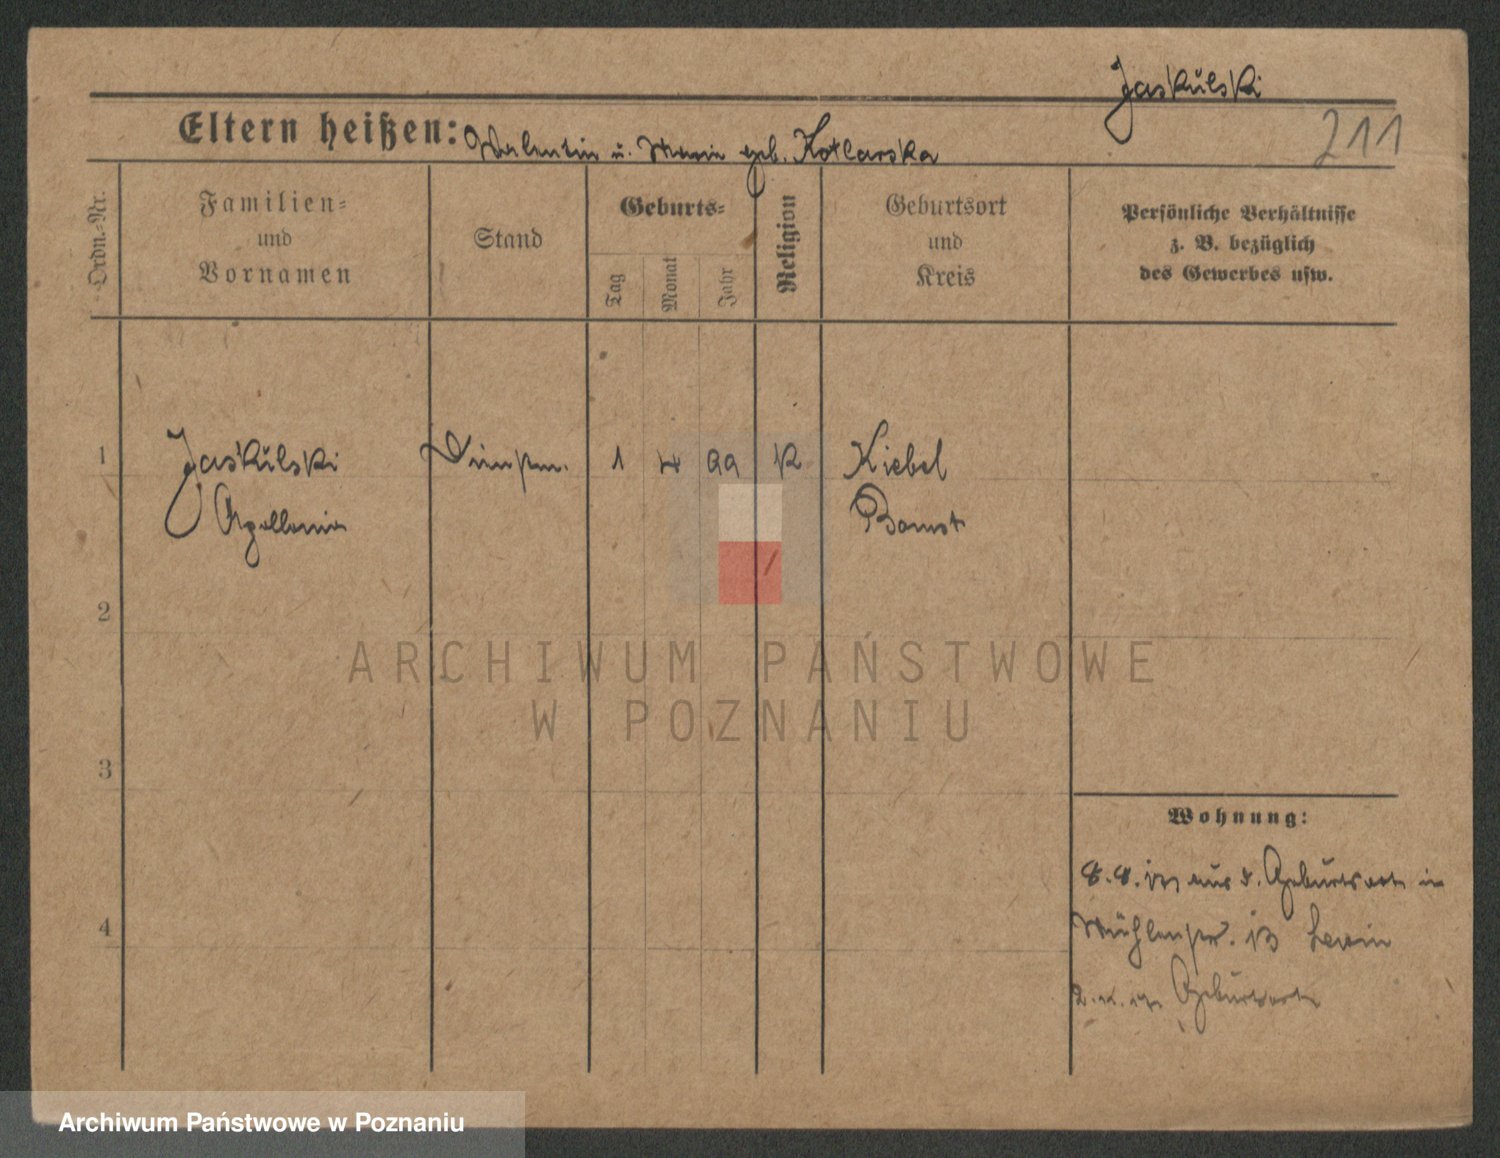 Jaskulski
211
Eltern heißen: Valentin u. Marie geb. Kotlarska
Ordn.-Nr.
Familien-
und
Vornamen
Stand
Geburts-
Tag
Monat
Jahr
Religion
Geburtsort
und
Kreis
Persönliche Verhältnisse
z. B. bezüglich
des Gewerbes usw.
1 Jaskulski 1 4 99 K Kiebel
Apollonia Bomst
2
ARCHIWUM PAŃSTWOWE
W POZNANIU
3
Wohnung:
aus d. Geburtsorte in
Mühlenstr. 13 Lewin
Geburtsorte
4
Archiwum Państwowe w Poznaniu